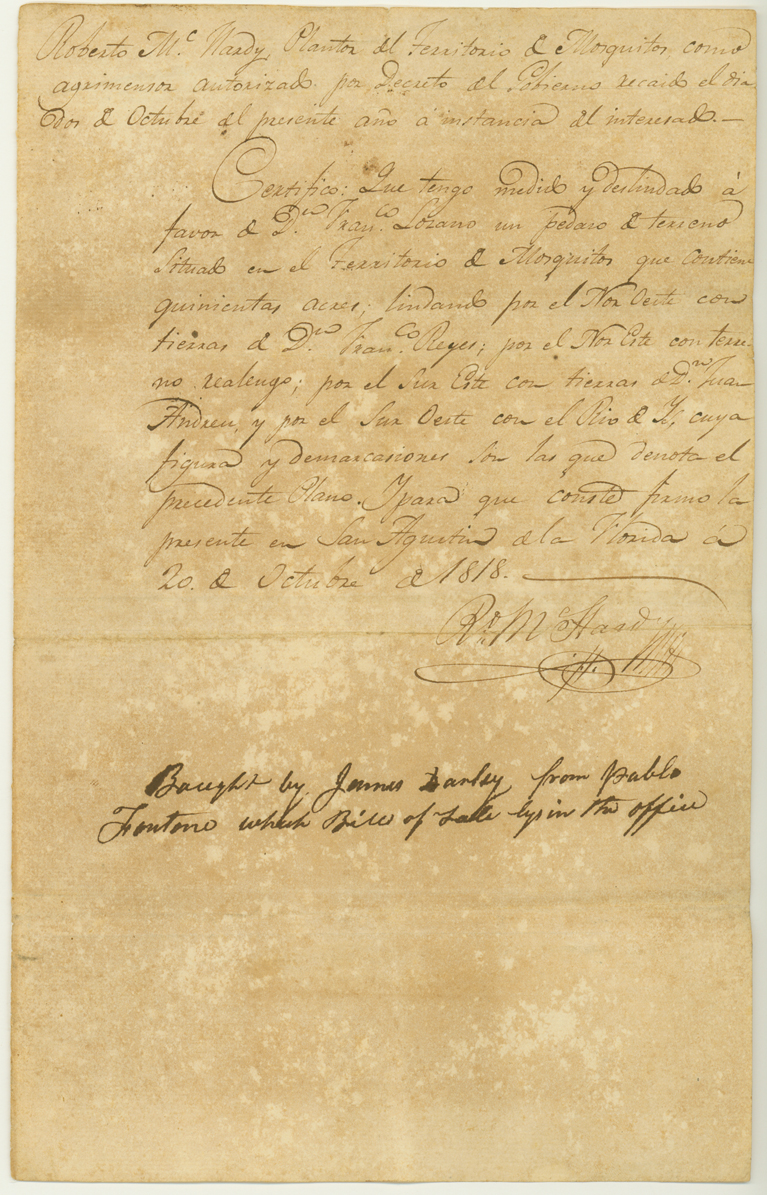 Roberto Mc. Hardy, Plantor del Territorio de Mosquitos como
agrimensor autorizado por Decreto del Gobierno recaido el dia
dos de Octubre del presente año a instancia del interesado.—
Certifico: Que tengo medido y deslindado á
favor de Dn. Franco. Lozano un pedaso de terreno
situado en el Territorio de Mosquitos que contiene
quinientas acres; lindando por el Nor Oeste con
tierras de Dn. Franco. Reyes; por el Nor Este con terre-
no realengo; por el Sur Este con tierras de Dn. Juan
Andreu, y por el Sur Oeste con el Rio de Ys, cuya
figura y demarcasiones son las que denota el
precedente Plano. Y para que conste firmo la
presente en San Agustin de la Florida á
20. de Octubre de 1818.
Rt. Mc Hardy
Bought by James Darley from Pablo
Fontane which Bill of Sale lys in the office